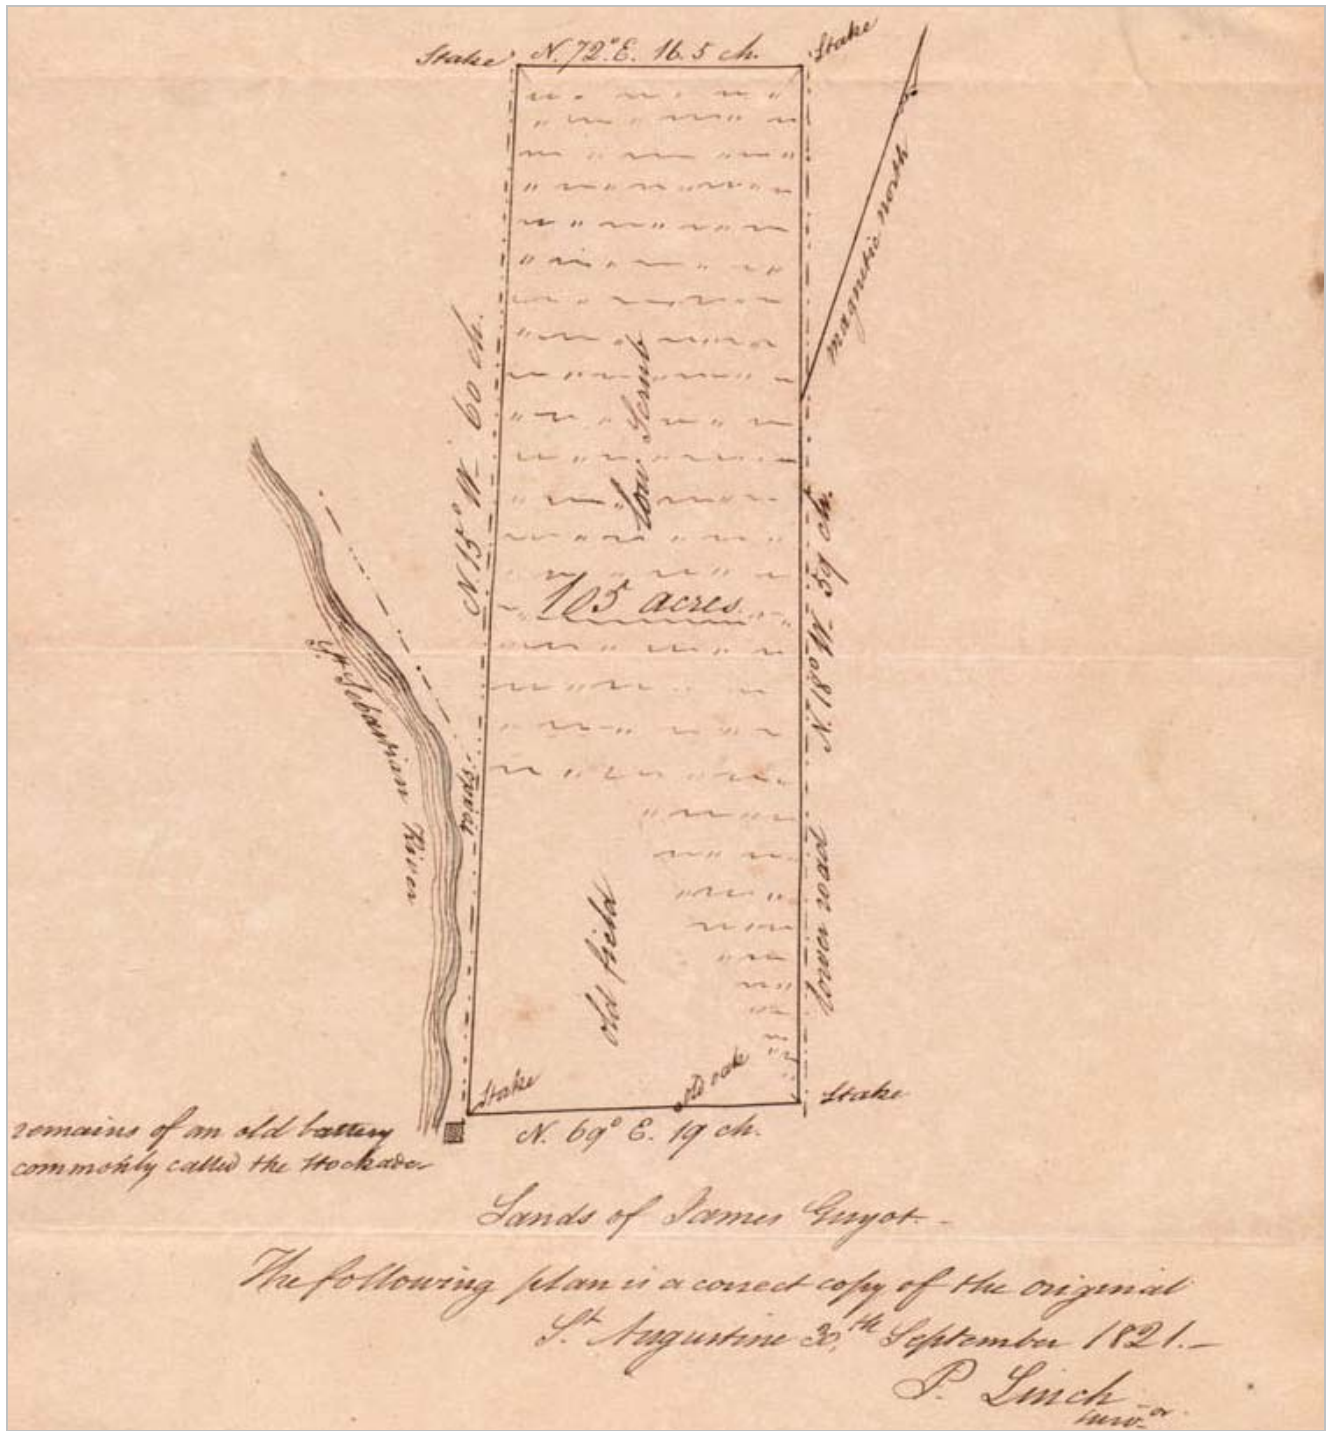 Stake
N. 72° E. 16.5 ch.
Stake
magnetic north
N. 15° W. 60 ch.
low Scrub
105 acres
N. 18° W. 59 ch.
St. Sebastian River
roads.
lower road
old field
Stake
old oak
Stake
N. 69° E. 19 ch.
remains of an old battery
commonly called the Stockade
Lands of James Guyot.
The following plan is a correct copy of the original
St Augustine 30th September 1821.
P. Linch
Surv.or